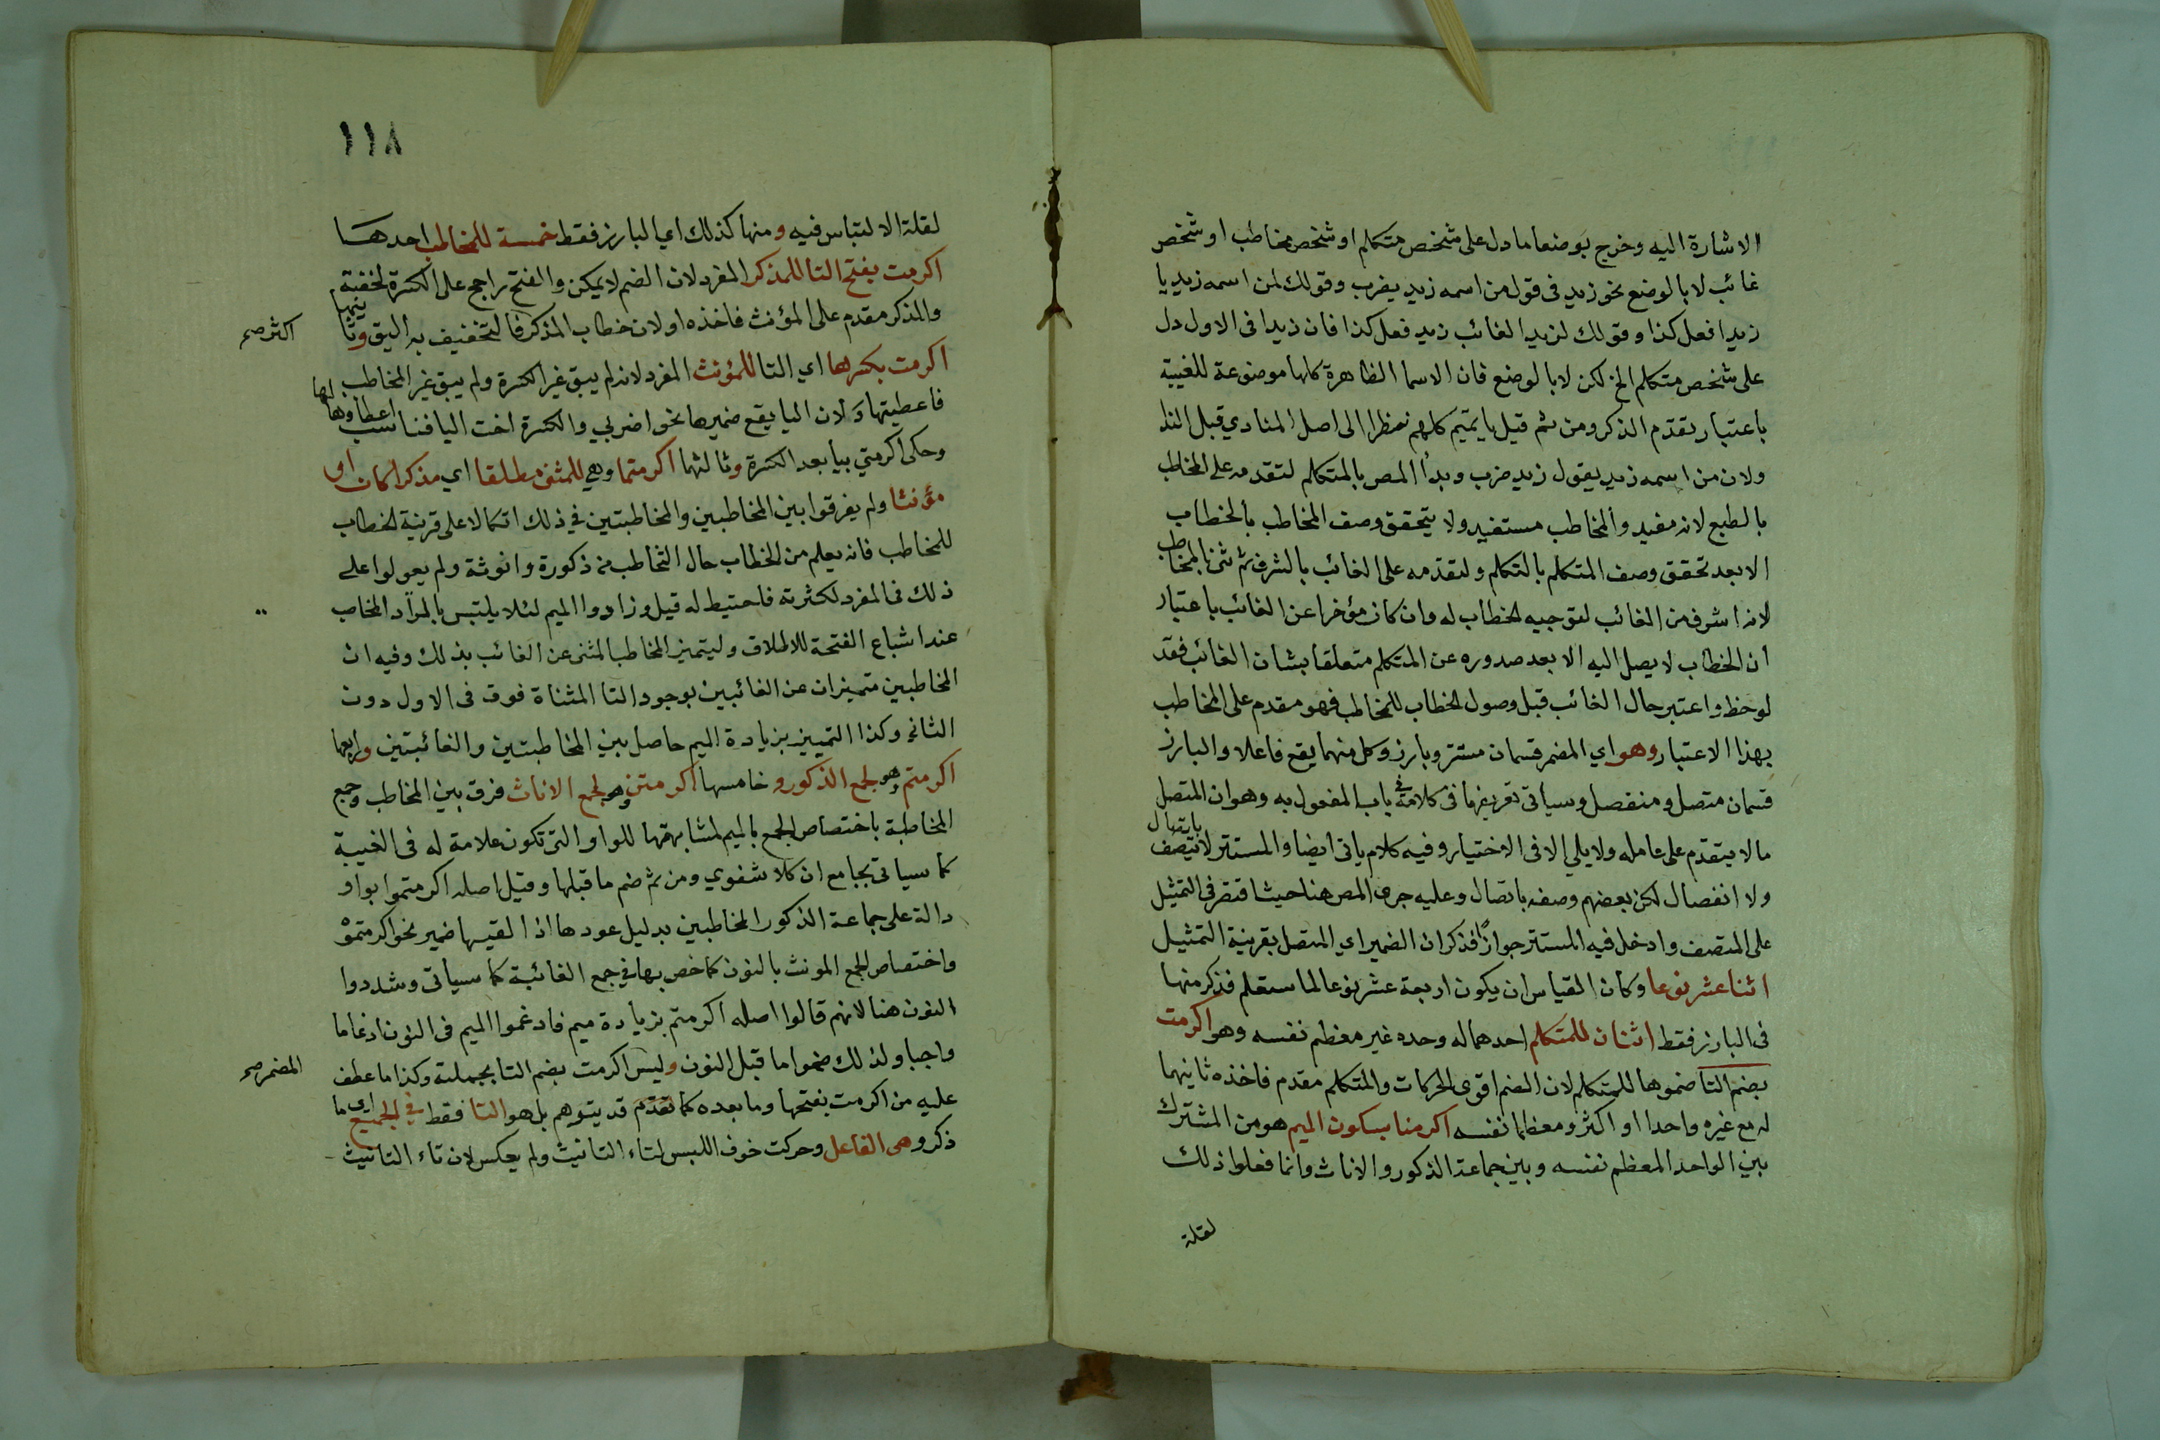 الاشارة اليه وخرج بوضعا ما دل على شخص متكلم او شخص مخاطب او شخص
غائب لا بالوضع نحو زيد في قول من اسمه زيد يضرب وقولك لمن اسمه زيد يا
زيد افعل كذا وقولك لزيد الغائب زيد فعل كذا فان زيدا في الاول دل
على شخص متكلم الخ لكن لا بالوضع فان الاسما الظاهرة كلها موضوعة للغيبة
باعتبار تقدم الذكر ومن ثم قيل يا تميم كلهم نظرا الى اصل المنادي قبل الندا
ولان من اسمه زيد يقول زيد ضرب وبدأ المص بالمتكلم لتقدمه على المخاطب
بالطبع لانه مفيد والمخاطب مستفيد ولا يتحقق وصف المخاطب بالخطاب
الا بعد تحقق وصف المتكلم بالتكلم ولتقدمه على الغائب بالشرف ثم ثنى بالمخاطب
لانه اشرف من الغائب لتوجيه الخطاب له وان كان مؤخرا عن الغائب باعتبار
ان الخطاب لا يصل اليه الا بعد صدوره عن المتكلم متعلقا بشان الغائب فقد
لوحظ واعتبر حال الغائب قبل وصول الخطاب للمخاطب فهو مقدم على المخاطب
بهذا الاعتبار وهو اي المضمر قسمان مستتر وبارز وكل منهما يقع فاعلا والبارز
قسمان متصل ومنفصل وسياتي تعريفهما في كلامه في باب المفعول به وهو ان المتصل
ما لا يتقدم على عامله ولا يلي الا في الاختيار وفيه كلام ياتي ايضا والمستتر لا يتصف باتصال
ولا انفصال لكن بعضهم وصفه باتصال وعليه جرى المص هنا حيث اقتصر في التمثيل
على المتصف وادخل فيه المستتر جوازا فذكر ان الضمير اي المتصل بقرينة التمثيل
اثنا عشر نوعا وكان القياس ان يكون اربعة عشر نوعا لما ستعلم فذكر منها
في البارز فقط اثنان للمتكلم احدهما له وحده غير معظم نفسه وهو اكرمت
بضم التا ضموها للمتكلم لان الضم اقوى الحركات والمتكلم مقدم فاخذه ثانيهما
له مع غيره واحدا او اكثر ومعظما نفسه اكرمنا بسكون الميم هو من المشترك
بين الواحد المعظم نفسه وبين جماعة الذكور والاناث وانما فعلوا ذلك
لقلة
١١٨
لقلة الالتباس فيه ومنها كذلك اي البارز فقط خمسة للمخاطب احدها
اكرمت بفتح التا للمذكر المفرد لان الضم لا يمكن والفتح راجح على الكسرة لخفته
والمذكر مقدم على المؤنث فاخذه او لان خطاب المذكر فالتخفيف به اليق وثانيها
اكثر صح
اكرمت بكسرها اي التا للمؤنث المفرد لانه لم يبق غير الكسرة ولم يبق غير المخاطب
فاعطيتها ولان اليا يقع ضميرها نحو اضربي والكسرة اخت اليا فناسب اعطاوها لها
وحكى اكرمتي بيا بعد الكسرة وثالثها اكرمتما وهي للمثنى مطلقا اي مذكرا كان او
مؤنثا ولم يفرقوا بين المخاطبين والمخاطبتين في ذلك اتكالا على قرينة الخطاب
للمخاطب فانه يعلم من الخطاب حال التخاطب من ذكورة وانوثة ولم يعولوا على
ذلك في المفرد لكثرته فاحتيط له قيل وزادوا الميم لئلا يلتبس بالمراد المخاطب
عند اشباع الفتحة للاطلاق وليتميز المخاطب المثنى عن الغائب بذلك وفيه ان
المخاطبين متميزان عن الغائبين بوجود التا المثناة فوق في الاول دون
الثاني وكذا التمييز بزيادة الميم حاصل بين المخاطبتين والغائبتين ورابعها
اكرمتم وهو لجمع الذكور و خامسها اكرمتن وهو لجمع الاناث فرق بين المخاطب وجمع
المخاطبة باختصاص الجمع بالميم لمشابهتها للواو التي تكون علامة له في الغيبة
كما سياتي بجامع ان كلا شفوي ومن ثم ضم ما قبلها وقيل اصله اكرمتموا بواو
دالة على جماعة الذكور المخاطبين بدليل عودها اذا لقيها ضمير نحو اكرمتموْ
واختصاص الجمع المونث بالنون كما خص بها في جمع الغائبة كما سياتي وشددوا
النون هنا لانهم قالوا اصله اكرمتم بزيادة ميم فادغموا الميم في النون ادغاما
واجبا ولذلك ضموا ما قبل النون وليس اكرمت بضم التا بجملته وكذا ما عطف
المضمر صح
عليه من اكرمت بفتحها وما بعده كما تقدم قد يتوهم بل هو التا فقط في الجميع اي ما
ذكر وهي الفاعل وحركت خوف اللبس لتاء التانيث ولم يعكس لان تاء التانيث